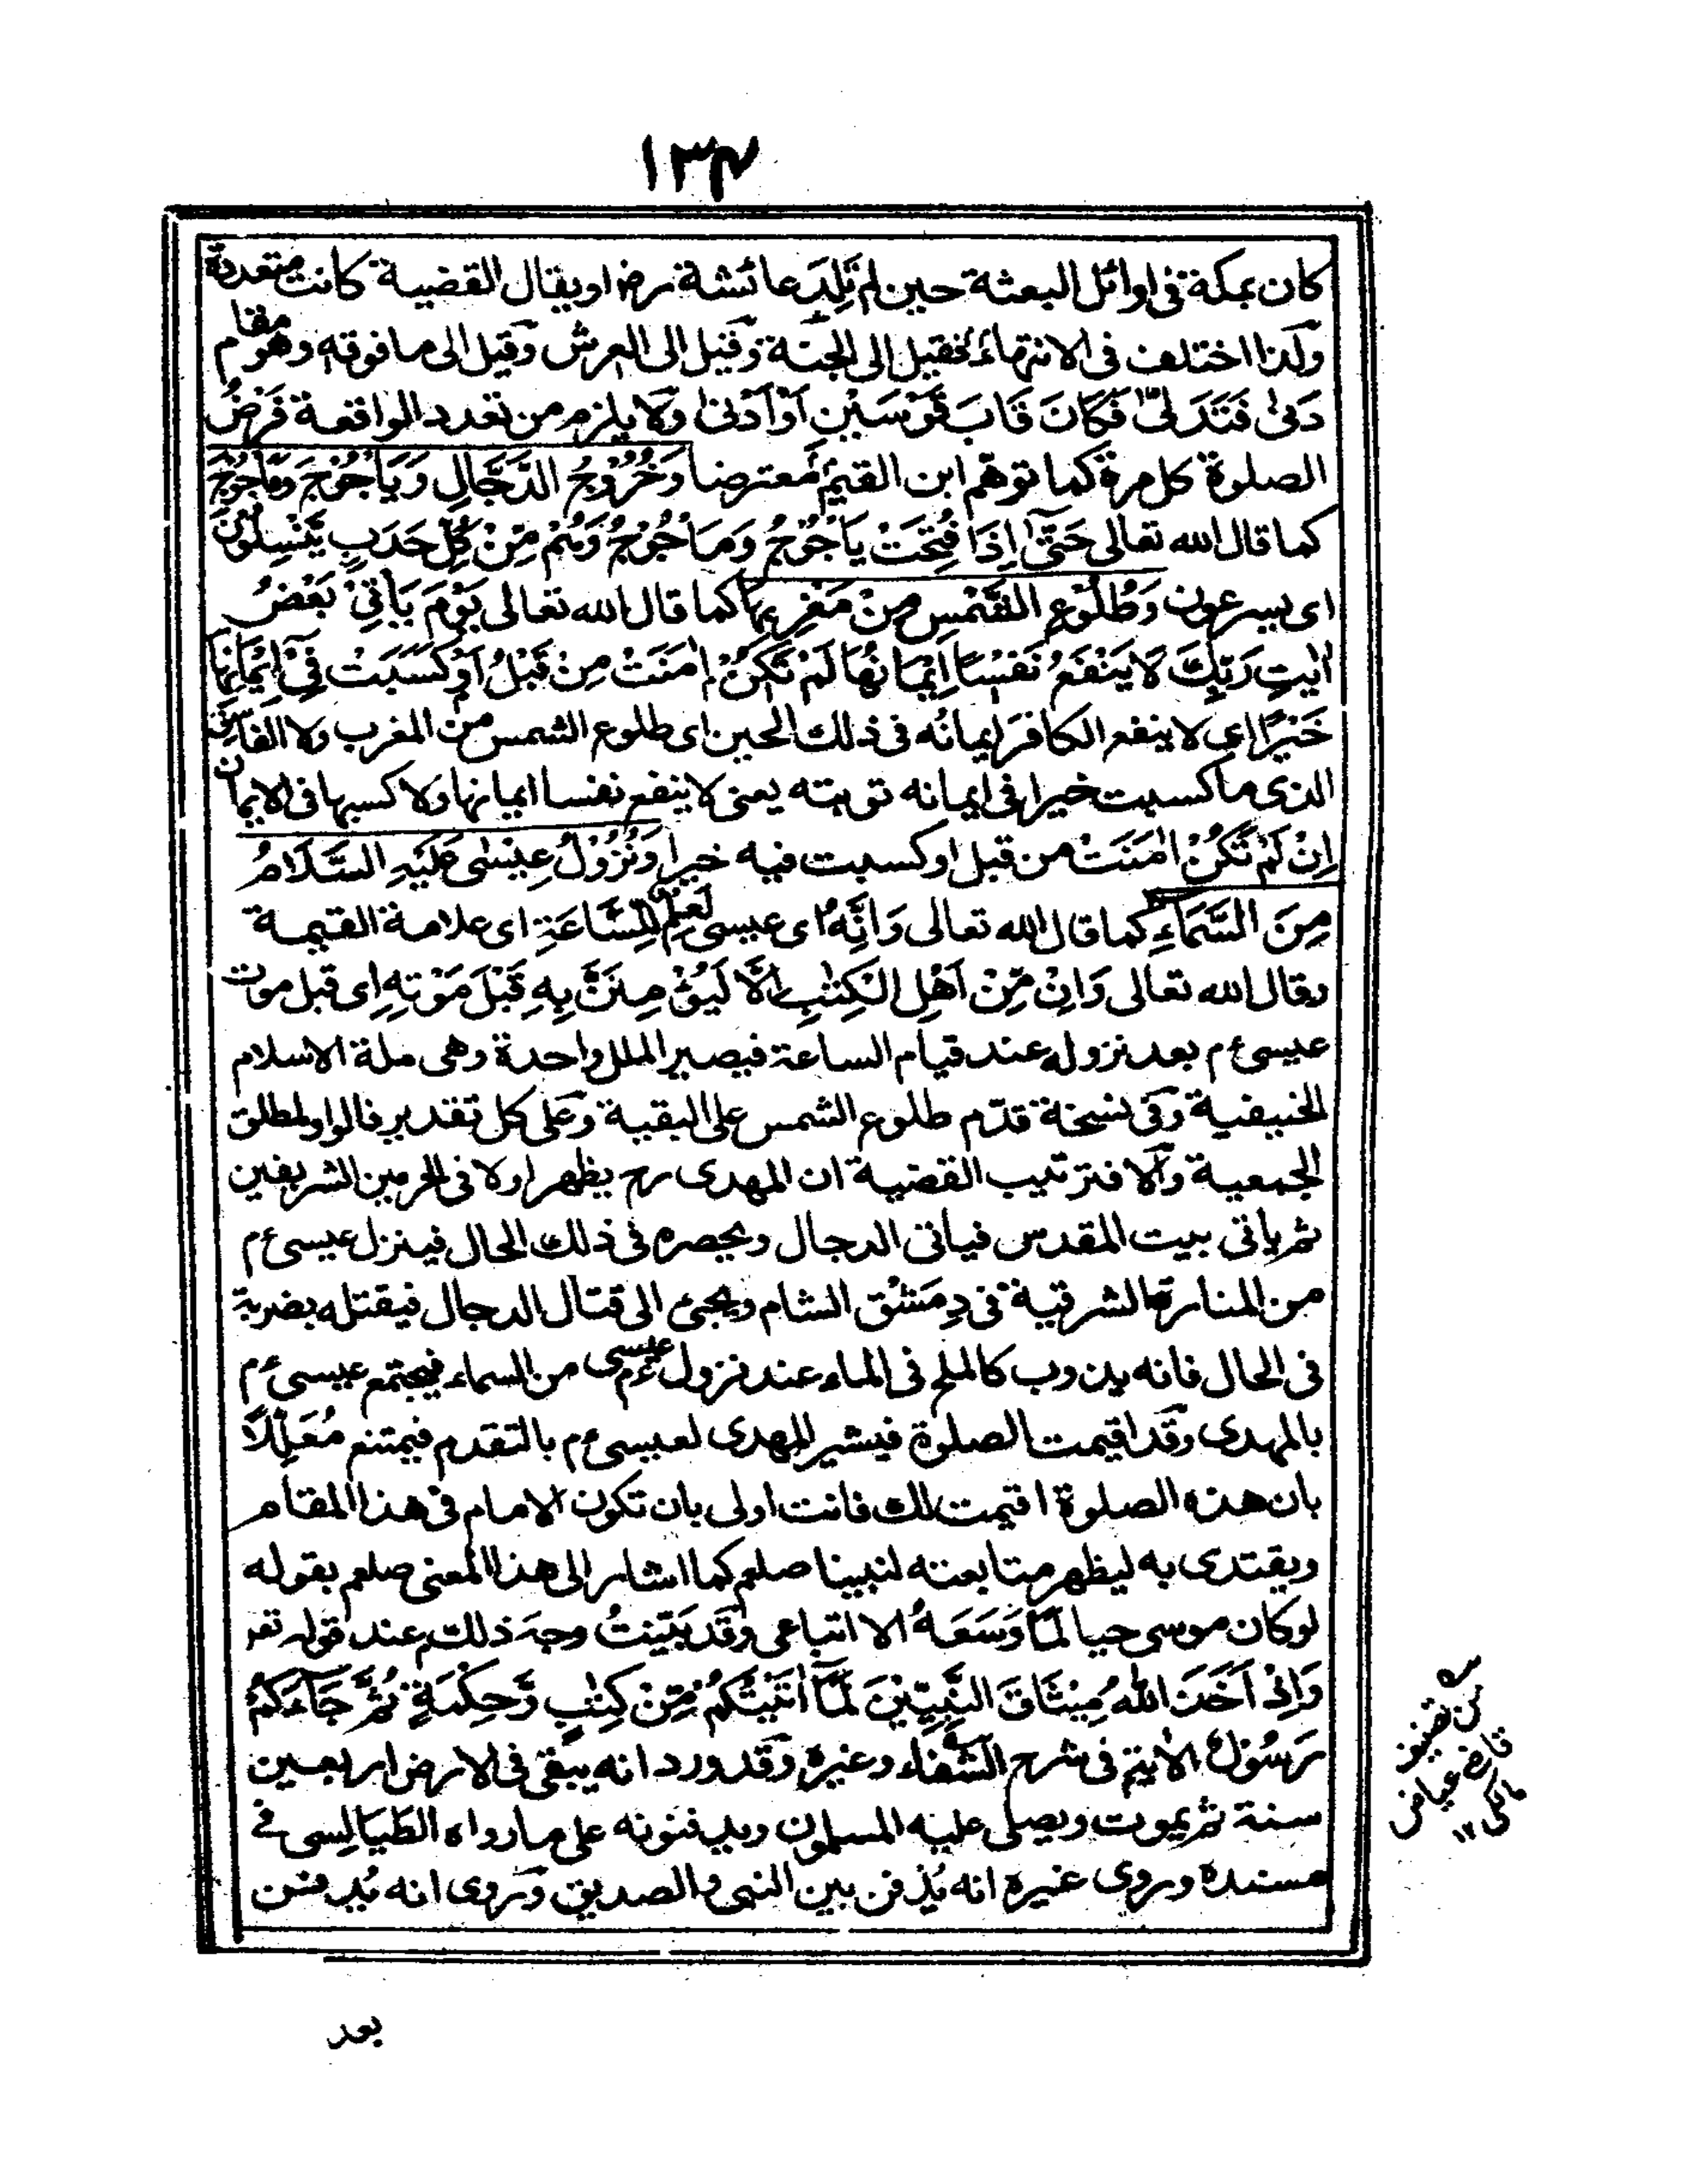 ١٣٤
كان بمكة فى اوائل البعثة حين لم تَلِدَ عائشة رض او يقال القضية كانت متعددة
ولذا اختلف فى الانتهاء فقيل الى الجنة وقيل الى العرش وقيل الى ما فوقه وهو مقام
دَنىٰ فَتَدَلّىٰ فَكَانَ قَابَ قَوْسَيْنِ اَوْ اَدْنىٰ ولا يلزم من تعدد الواقعة فَرْضُ
الصلوة كل مرة كما توهم ابن القيم معترضا وَخُرُوْجُ الدَّجَّالِ وَيَاْجُوْجَ وَمَاْجُوْجَ
كما قال الله تعالى حَتّٰى اِذَا فُتِحَتْ يَاْجُوْجُ وَمَاْجُوْجُ وَهُمْ مِّنْ كُلِّ حَدَبٍ يَّنْسِلُوْنَ
اى يسرعون وَطُلُوْعِ الشَّمْسِ مِنْ مَغْرِبِهَا كما قال الله تعالى يَوْمَ يَاْتِىْ بَعْضُ
اٰيٰتِ رَبِّكَ لَا يَنْفَعُ نَفْسًا اِيْمَانُهَا لَمْ تَكُنْ اٰمَنَتْ مِنْ قَبْلُ اَوْ كَسَبَتْ فِىْ اِيْمَانِهَا
خَيْرًا اى لا ينفع الكافرَ ايمانُه فى ذلك الحين اى طلوع الشمس من المغرب ولا الفاسق
الذى ما كسبت خيرا فى ايمانه توبته يعنى لا ينفع نفسا ايمانها ولا كسبها فى الايمان
اِنْ لَمْ تَكُنْ اٰمَنَتْ من قبل او كسبت فيه خيرا وَنُزُوْلُ عِيْسٰى عَلَيْهِ السَّلَامُ
مِنَ السَّمَاءِ كما قال الله تعالى وَاِنَّهٗ اى عيسى لَعِلْمٌ لِّلسَّاعَةِ اى علامة القيمة
وقال الله تعالى وَاِنْ مِّنْ اَهْلِ الْكِتٰبِ اِلَّا لَيُؤْمِنَنَّ بِهٖ قَبْلَ مَوْتِهٖ اى قبل موت
عيسىٰ ءم بعد نزوله عند قيام الساعة فيصير الملل واحدة وهى ملة الاسلام
الحنيفية وفى نسخة قدّم طلوع الشمس على البقية وعلى كل تقدير فالواو لمطلق
الجمعية والا فترتيب القضية ان المهدى رح يظهر اولا فى الحرمين الشريفين
ثم ياتى بيت المقدس فياتى الدجال ويحصره فى ذلك الحال فينزل عيسىٰ ءم
من المنارة الشرقية فى دِمَشْق الشام ويجئ الى قتال الدجال فيقتله بضربة
فى الحال فانه يذوب كالملح فى الماء عند نزول عيسى ءم من السماء فيجتمع عيسىٰ ءم
بالمهدى وقد اقيمت الصلوة فيشير المهدى لعيسىٰ ءم بالتقدم فيمتنع مُعَلِّلًا
بان هذه الصلوة اقيمت لك فانت اولى بان تكون الامام فى هذا المقام
ويقتدى به ليظهر متابعته لنبينا صلعم كما اشار الى هذا المعنى صلعم بقوله
لو كان موسى حيا لَمَا وَسَعَهُ الا اتباعى وقد بَيَّنتُ وجهَ ذلك عند قوله تعـ
وَاِذْ اَخَذَ اللّٰهُ مِيْثَاقَ النَّبِيّٖنَ لَمَا اٰتَيْتُكُمْ مِّنْ كِتٰبٍ وَّحِكْمَةٍ ثُمَّ جَاءَكُمْ
رَسُوْلٌ الأية فى شرح الشفاء وغيره وقد ورد انه يبقى فى الارض اربعين
سنة ثم يموت ويصلى عليه المسلمون ويدفنونه على ما رواه الطَيَالِسى فى
مسنده وروى غيره انه يُدفن بين النبى والصديق ورُوى انه يُدفن
قاضى عياض
مالكى ١٢
بعد